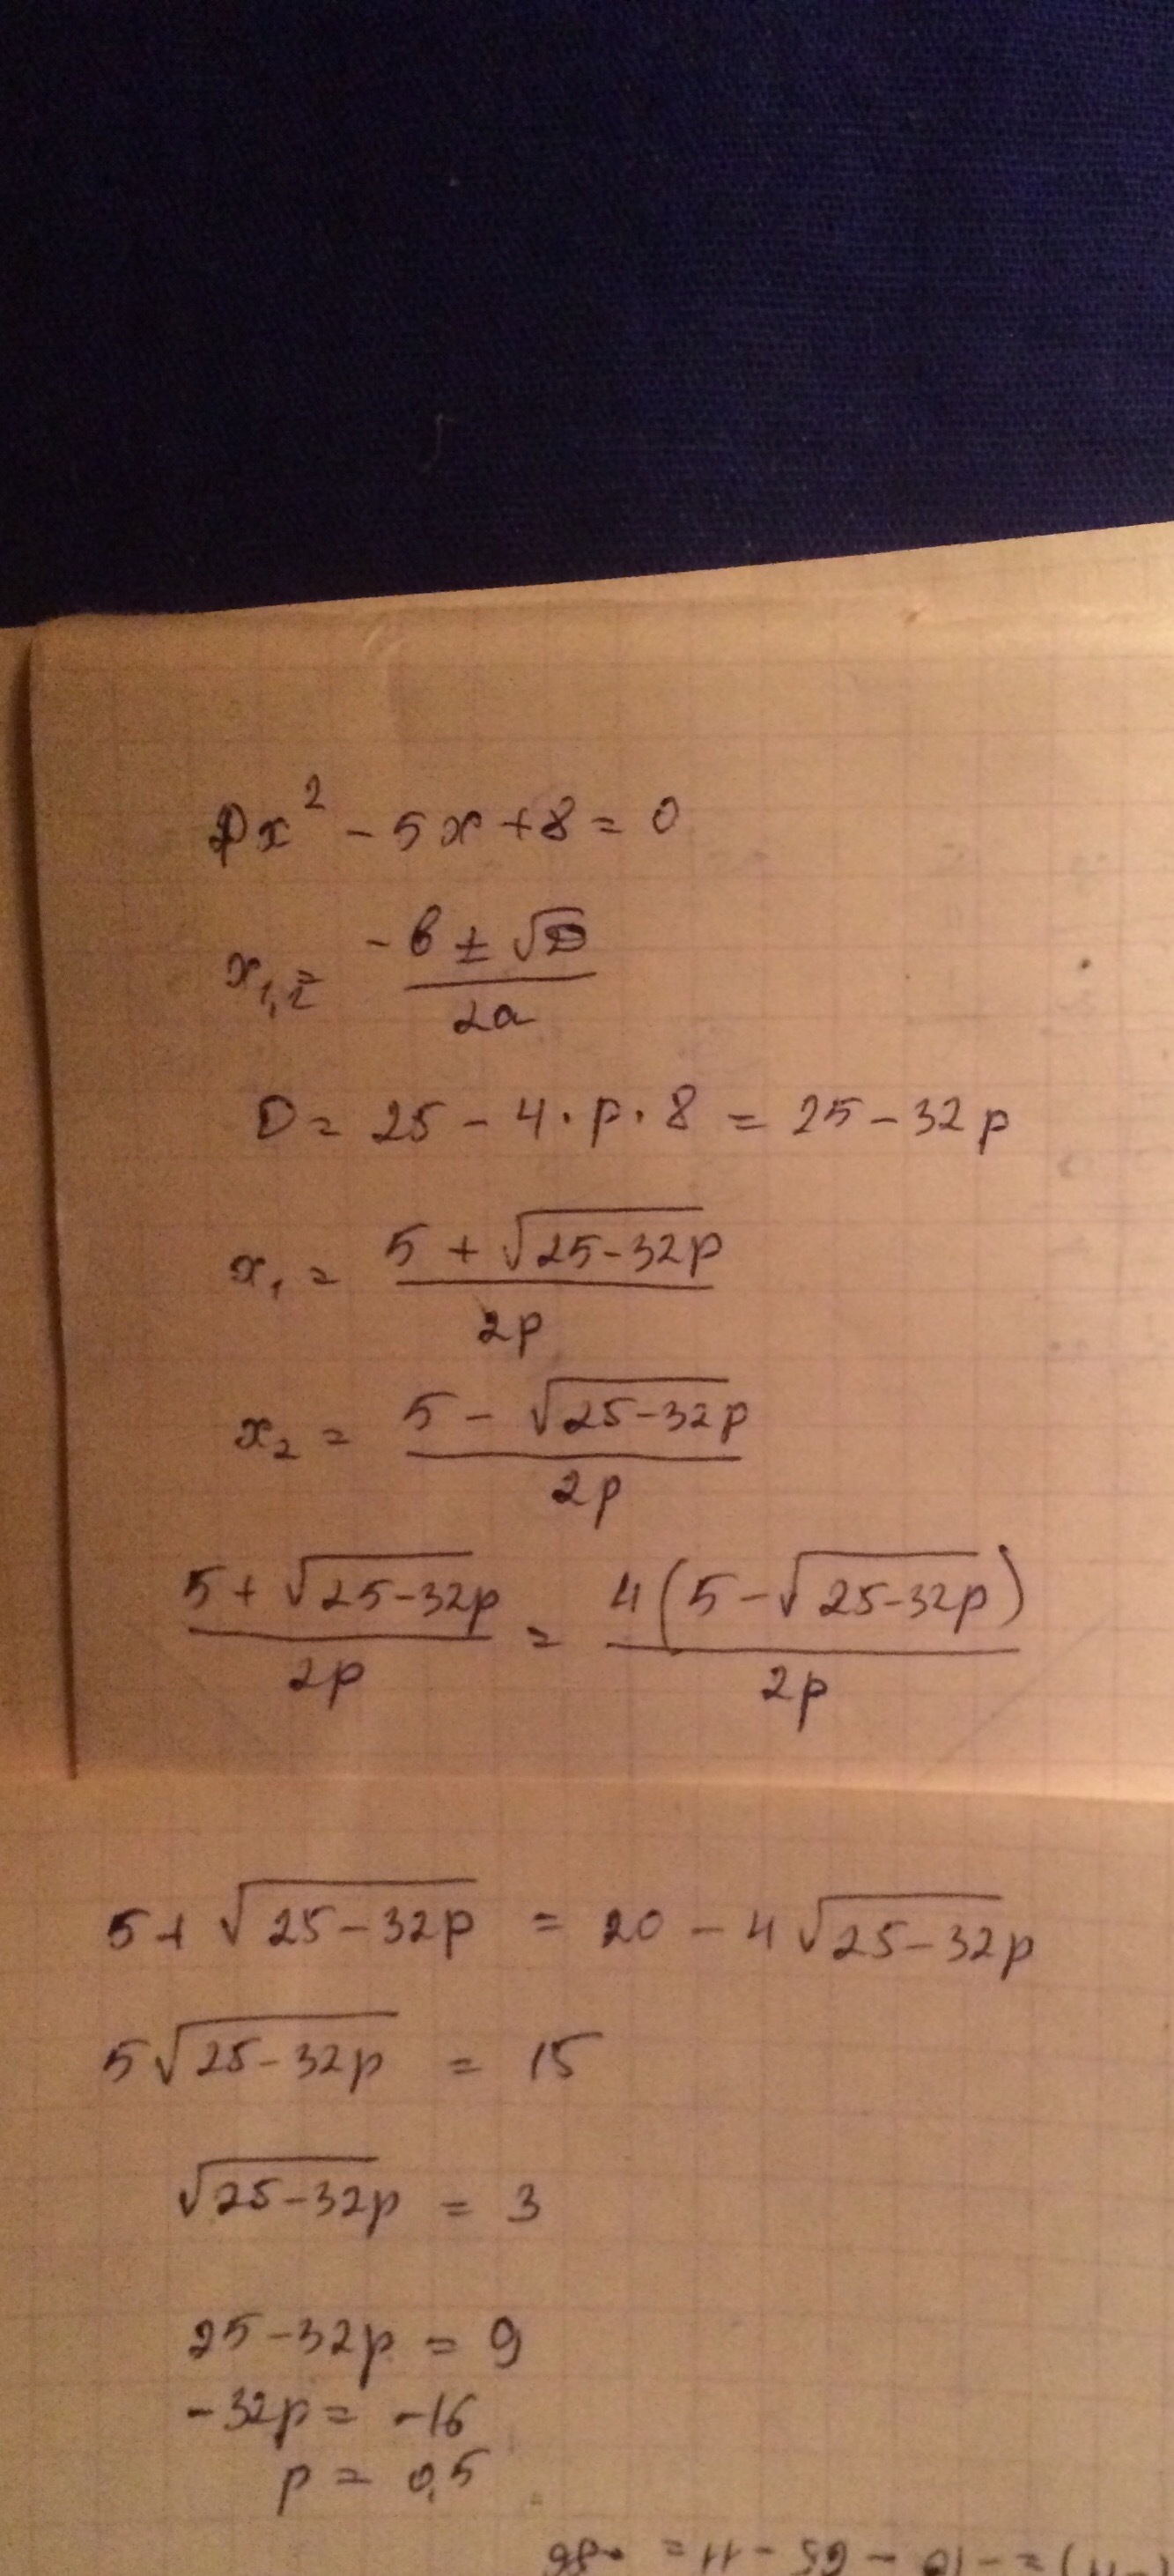 px² - 5x + 8 = 0
x₁,₂ = (-b ± √D) / 2a
D = 25 - 4 · p · 8 = 25 - 32p
x₁ = (5 + √(25-32p)) / 2p
x₂ = (5 - √(25-32p)) / 2p
(5 + √(25-32p)) / 2p = 4(5 - √(25-32p)) / 2p
5 + √(25-32p) = 20 - 4√(25-32p)
5√(25-32p) = 15
√(25-32p) = 3
25-32p = 9
-32p = -16
p = 0,5